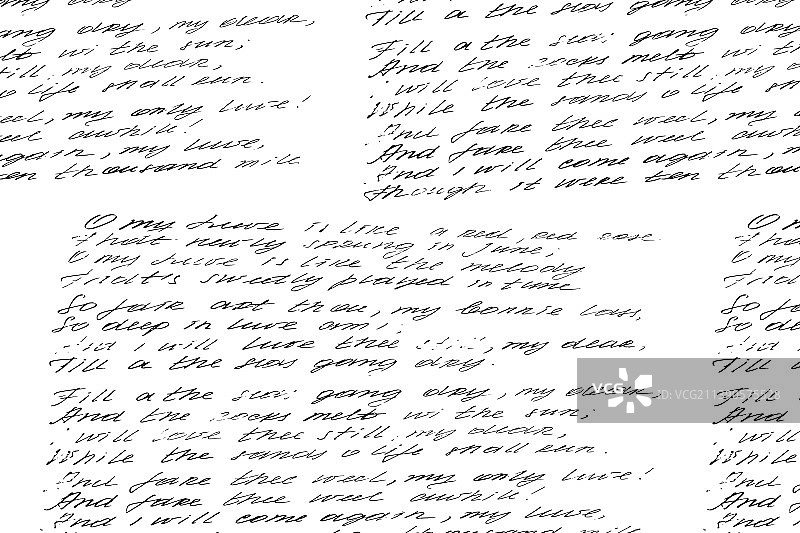 ang dry, my dear,
melt wi the sun;
still, my dear,
o life shall run.
weel, my only luve!
weel awhile!
again, my luve,
ten thousand mile
Till a the seas gang dry
Till a the seas gang dry
And the rocks melt wi th
will love thee still, my d
While the sands o life sh
And fare thee weel, my only
And fare thee weel awh
And I will come again, m
Though it were ten thou
O my luve is like a red, red rose
That newly sprung in June;
O my luve is like the melody
That's sweetly played in tune
So fair art thou, my bonnie lass,
So deep in luve am i;
And i will luve thee still, my dear,
Till a the seas gang dry.
Till a the seas gang dry, my dear,
And the rocks melt wi the sun;
i will love thee still, my dear,
While the sands o life shall run.
And fare thee weel, my only luve!
And fare thee weel awhile!
And i will come again, my luve,
thousand mile
O m
Tha
O my
That
So fa
So de
And i
Till a
Till
And
will
While
And
And fa
And i
VCG